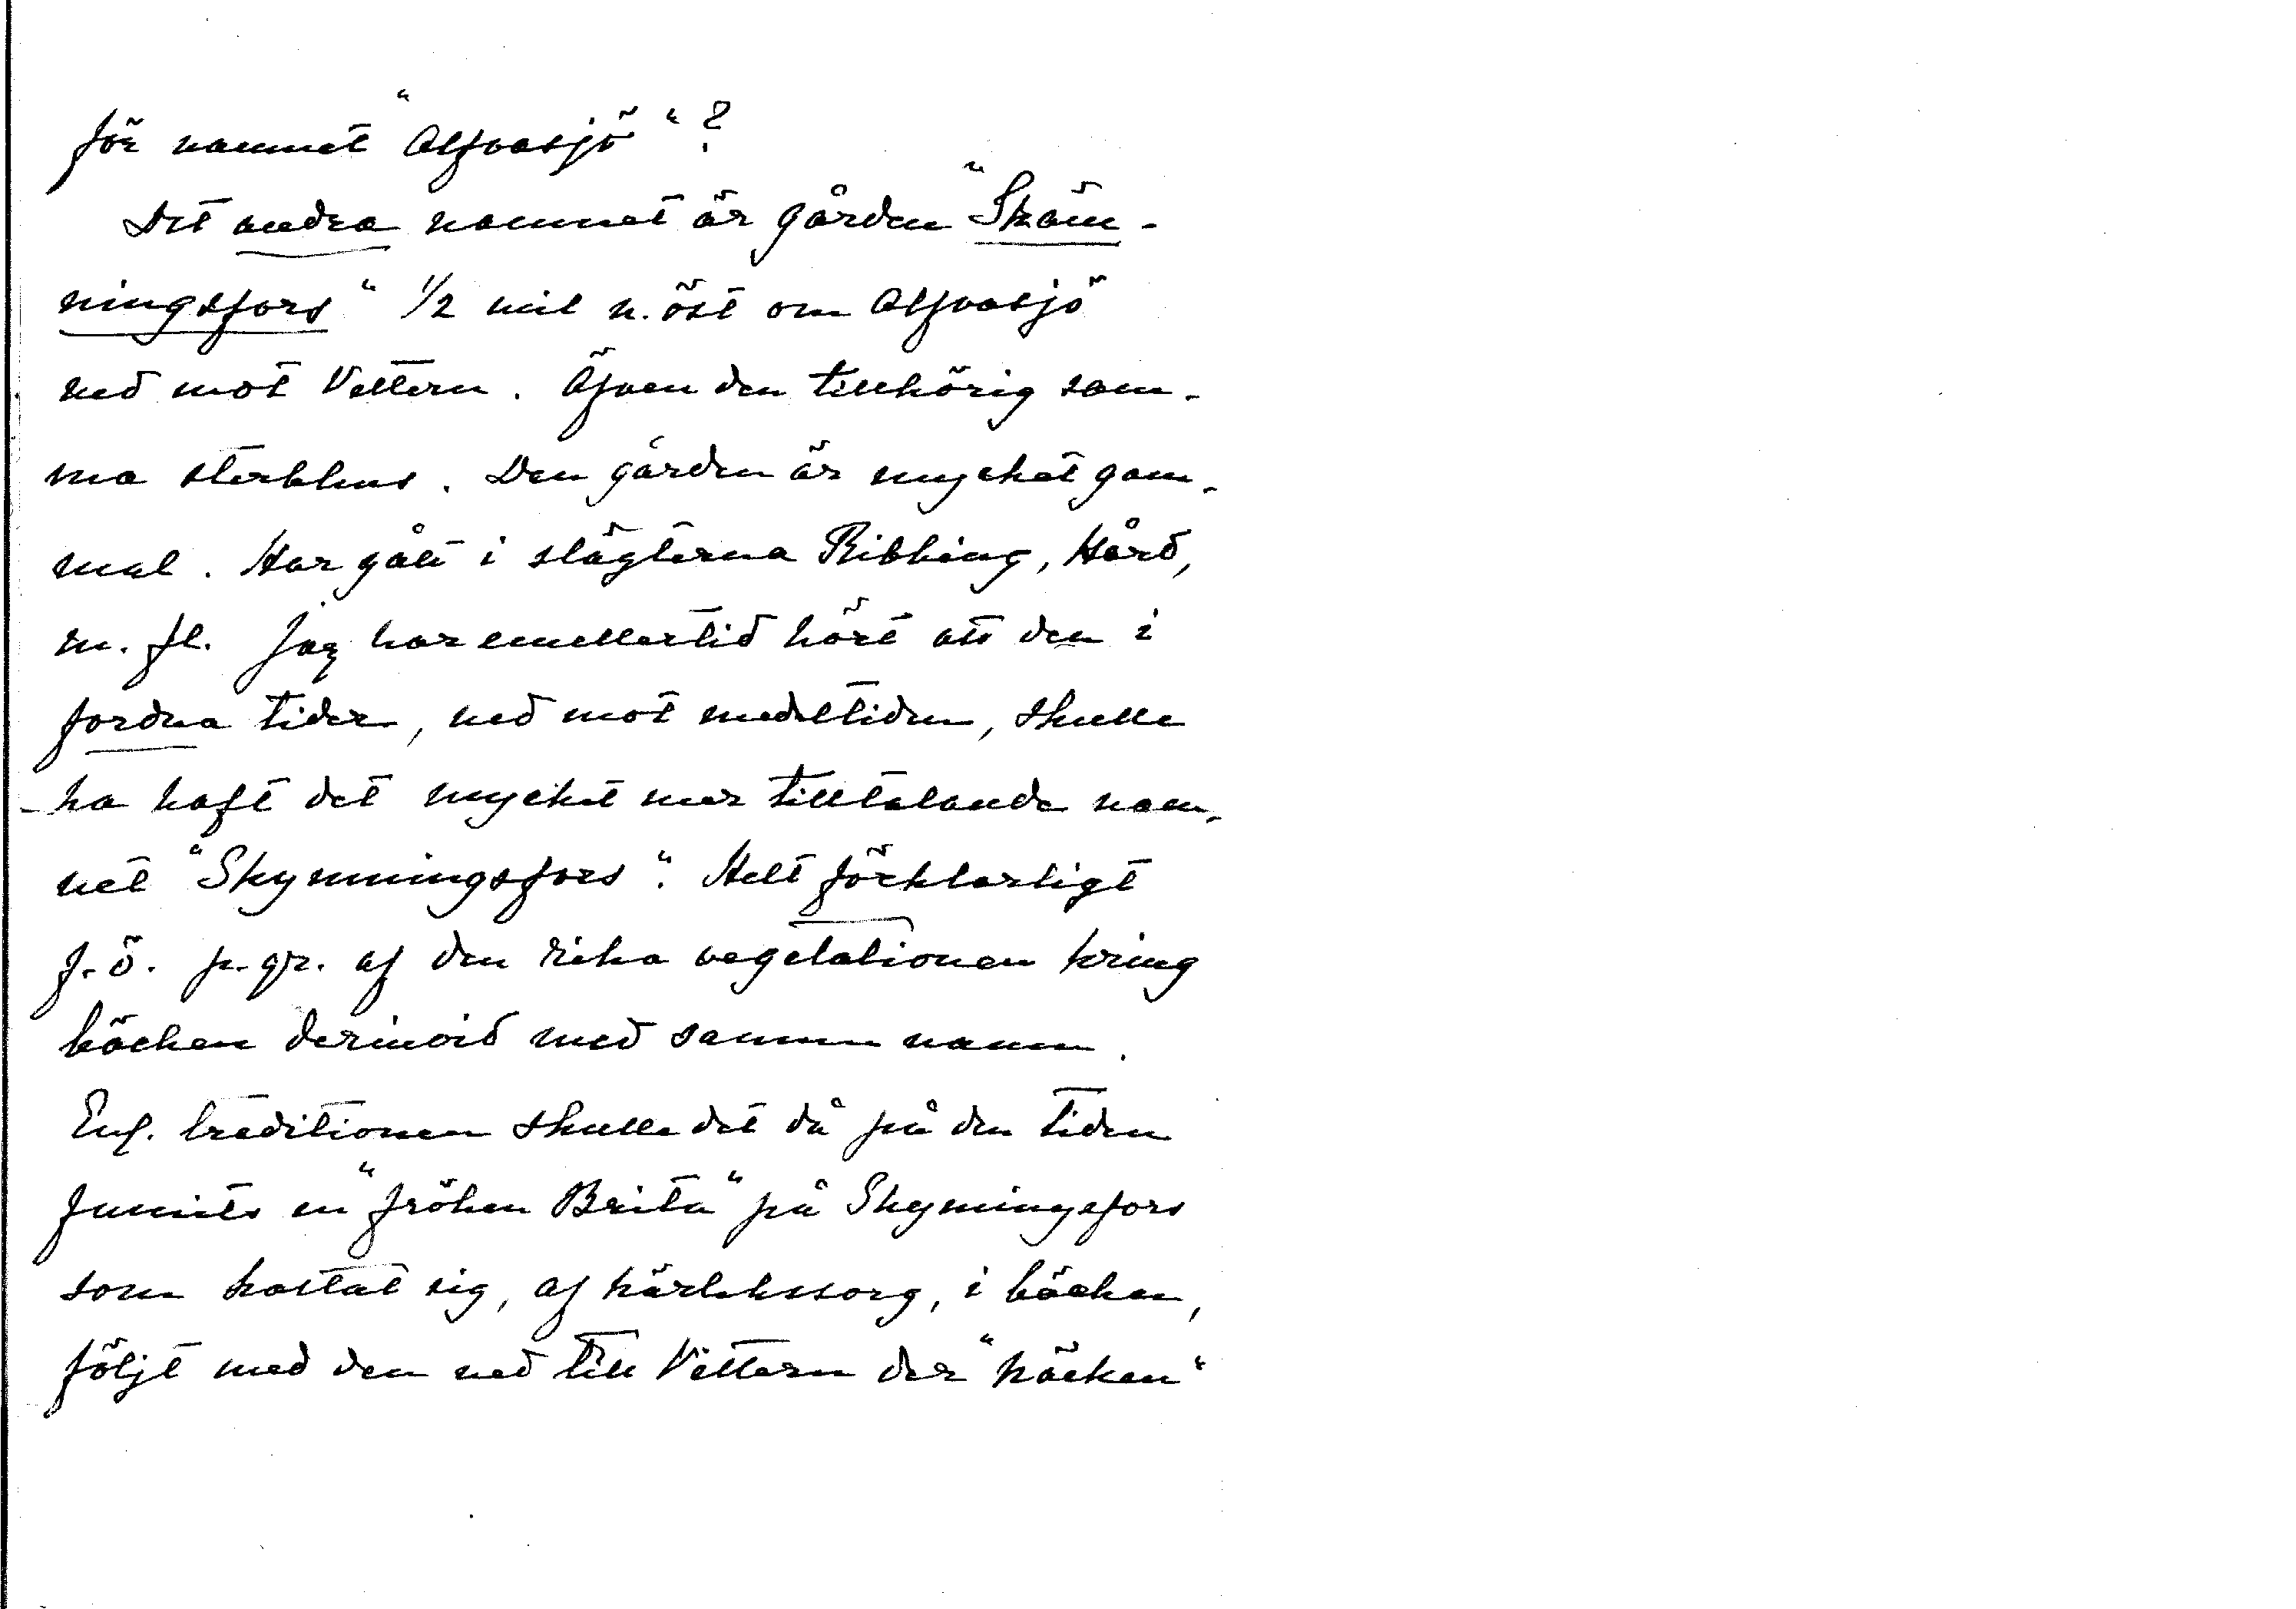 för namnet "Alfvasjö"?
Det andra namnet är gården "Skäm-
ningsfors" 1/2 mil n. öst om Alfvasjö
ned mot Vettern. Äfven den tillhörig sam-
ma sterbhus. Den gården är mychet gam-
mal. Har gått i slägterna Ribbing, Hård,
m. fl. Jag har emellertid hört att den i
fordna tider, ned mot medeltiden, skulle
ha haft det mychet mer tilltalande nam-
net "Skymningsfors". Helt förklarligt
f. ö. p. gr. af den rika vegetationen kring
bäcken derinvid med samma namn.
Enl. traditionen skulle det då på den tiden
funnits en "fröken Brita" på Skymingsfors
som kastat sig, af kärlekssorg, i bäcken,
följt med den ned till Vettern der "bäcken"